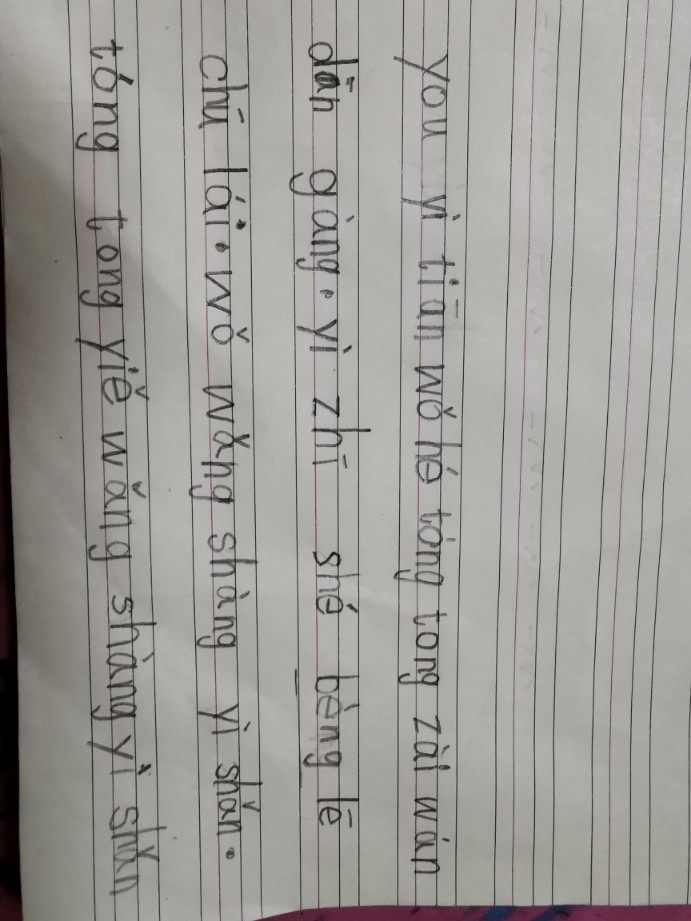 you yì tiān wǒ hé tóng tong zài wán
dān gàng。yì zhī shé bèng lē
chū lái。wǒ wǎng shàng yì shǎn。
tóng tong yiě wǎng shàng yì shǎn